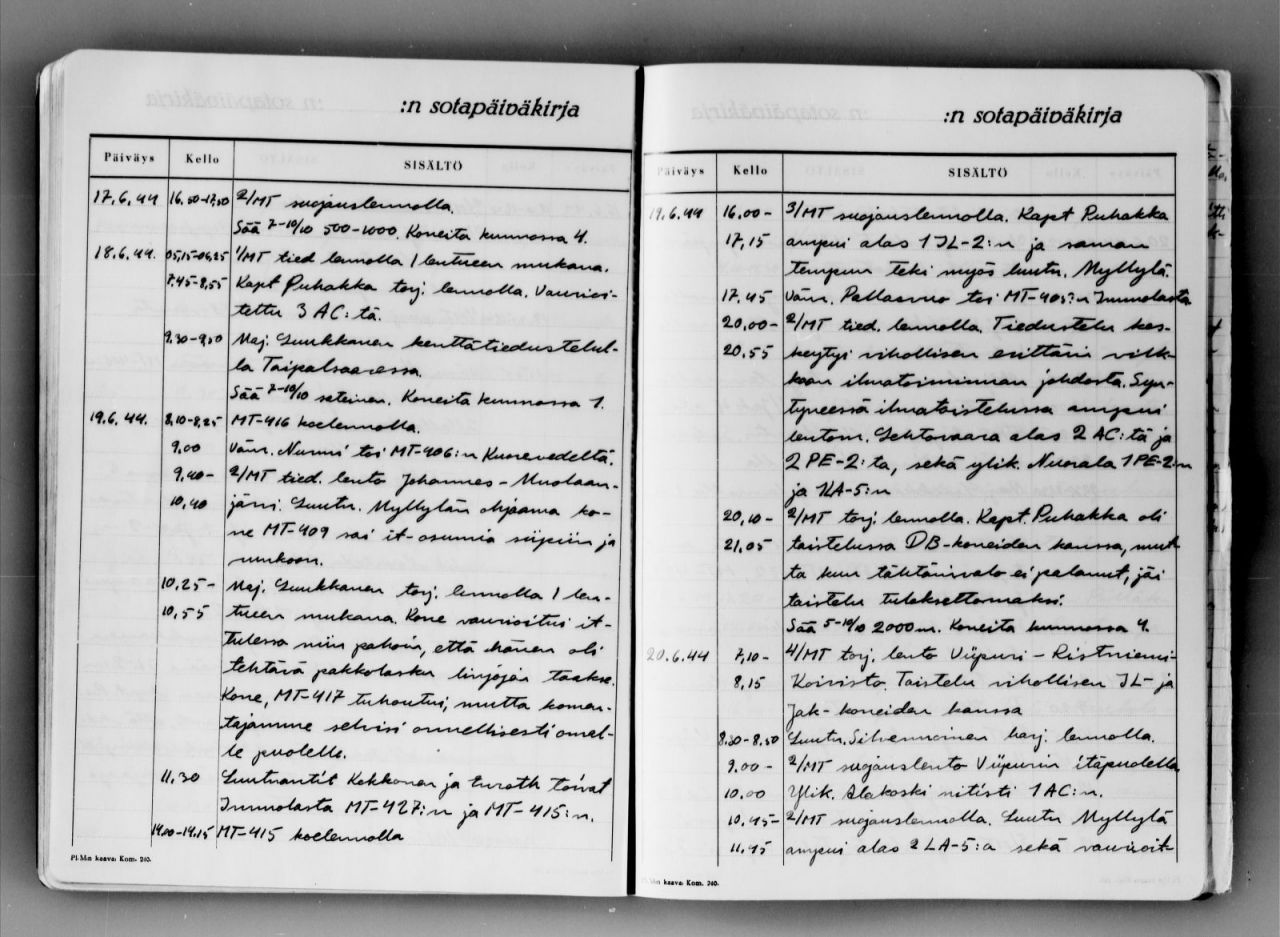 :n sotapäiväkirja
Päiväys Kello SISÄLTÖ
17.6.44 16.50-17.50 2/MT suojauslennolla.
Sää 7-10/10 500-1000. Koneita kunnossa 4.
18.6.44. 05,15-06,25 1/MT tied lennolla 1 lentueen mukana.
7.45-8,55 Kapt Puhakka torj. lennolla. Vaurioi-
tettu 3 AC:tä.
9.30-9,50 Maj. Luukkanen kenttätiedustelul-
la Taipalsaaressa.
Sää 7-10/10 sateinen. Koneita kunnossa 1.
19.6.44. 8,10-8,25 MT-416 koelennolla.
9.00 Vänr. Nurmi toi MT-406:n Kuorevedeltä.
9.40- 2/MT tied. lento Johannes - Muolaan-
10,40 järvi. Luutn. Myllylän ohjaama ko-
ne MT-409 sai it-osumia siipiin ja
runkoon.
10.25- Maj. Luukkanen torj. lennolla 1 len-
10,55 tueen mukana. Kone vaurioitui it-
tulessa niin pahoin, että hänen oli
tehtävä pakkolasku linjojen taakse.
Kone, MT-417 tuhoutui, mutta komen-
tajamme selvisi onnellisesti omal-
le puolelle.
11.30 Luutnantit Kokkonen ja toivat
Immolasta MT-427:n ja MT-415:n.
19.00-19.15 MT-415 koelennolla
Pl.M:n kaava: Kom. 240.
:n sotapäiväkirja
Päiväys Kello SISÄLTÖ
19.6.44 16.00- 3/MT suojauslennolla. Kapt Puhakka
17,15 ampui alas 1 IL-2:n ja saman
tempun teki myös luutn. Myllylä.
17.45 Vänr. Pallasvuo toi MT-405:n Immolasta
20.00- 2/MT tied. lennolla. Tiedustelu kes-
20.55 keytyi vihollisen erittäin vilk-
kaan ilmatoiminnan johdosta. Syn-
tyneessä ilmataistelussa ampui
lentom. Lehtovaara alas 2 AC:tä ja
2 PE-2:ta, sekä ylik. Nuorala 1 PE-2:n
ja LA-5:n
20,10- 2/MT torj. lennolla. Kapt. Puhakka oli
21.05 taistelussa DB-koneiden kanssa, mut-
ta kun tähtäinvalo ei palanut, jäi
taistelu tuloksettomaksi.
Sää 5-10/10 2000 m. Koneita kunnossa 4.
20.6.44 7,10- 4/MT torj. lento Viipuri - Ristniemi-
8,15 Koivisto. Taistelu vihollisen IL- ja
Jak-koneiden kanssa
8.30-8.50 Luutn. Silvennoinen harj. lennolla.
9.00- 2/MT suojauslento Viipurin itäpuolella
10.00 Ylik. Alakoski nitisti 1 AC:n.
10.45- 2/MT suojauslennolla. Luutn Myllylä
11.45 ampui alas 2 LA-5:a sekä vaurioit-
Pl.M:n kaava: Kom. 240.